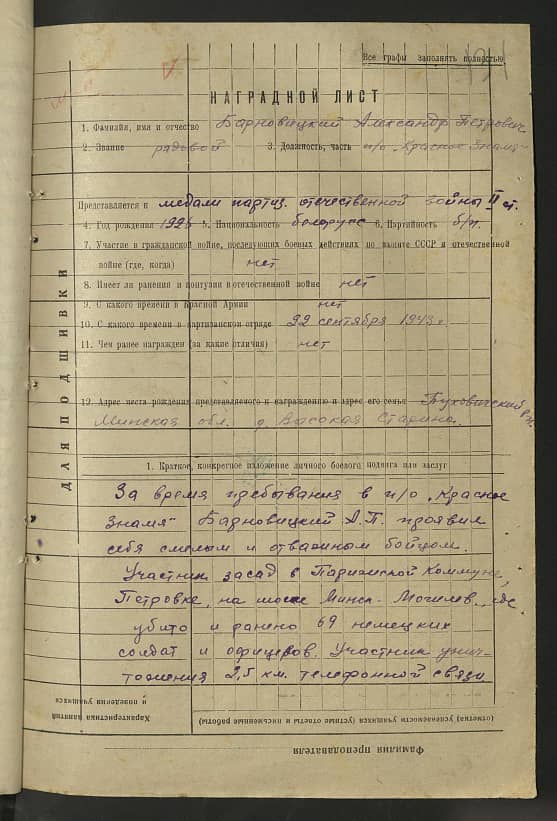 Все графы заполнять полностью
131
НАГРАДНОЙ ЛИСТ
1. Фамилия, имя и отчество Барновицкий Александр Петрович
2. Звание рядовой 3. Должность, часть п/о „Красное Знамя“
Представляется к медали партиз. отечественной войны II ст.
4. Год рождения 1926 5. Национальность белорусс 6. Партийность б/п.
7. Участие в гражданской войне, последующих боевых действиях по защите СССР и отечественной
войне (где, когда) нет
8. Имеет ли ранения и контузии в отечественной войне нет
9. С какого времени в Красной Армии нет
10. С какого времени в партизанском отряде 22 сентября 1943 г.
11. Чем ранее награжден (за какие отличия) нет
12. Адрес места рождения представляемого к награждению и адрес его семьи
Минская обл. д. Высокая Старина.
1. Краткое, конкретное изложение личного боевого подвига или заслуг
За время пребывания в п/о „Красное
Знамя“ Барновицкий А.П. проявил
себя смелым и отважным бойцом.
Участник засад в Парижской Коммуне,
Петровке, на шоссе Минск-Могилев, где
убито и ранено 69 немецких
солдат и офицеров. Участник унич-
тожения 2,5 км. телефонной связи
ДЛЯ ПОДШИВКИ
Характеристика занятий
и поведения учащихся
(отметка) (успеваемости устные ответы и письменные работы)
Фамилия преподавателя